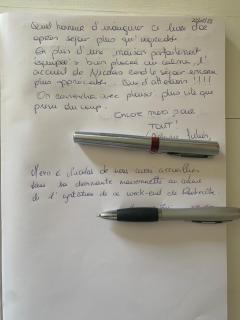 Quel honneur d'inaugurer ce livre d'or
après séjour plus qu'agréable
En plus d'une maison parfaitement
équipée & bien placée au calme, l'
accueil de Nicolas rend le séjour encore
plus appréciable. Que d'attentions !!!!
On reviendra avec plaisir plus vite que
prévu du coup.
Encore merci pour
TOUT !
Merci à Nicolas de nous avoir accueillis
dans sa charmante maisonnette au calme
de l'agitation de ce week-end de Pentecôte